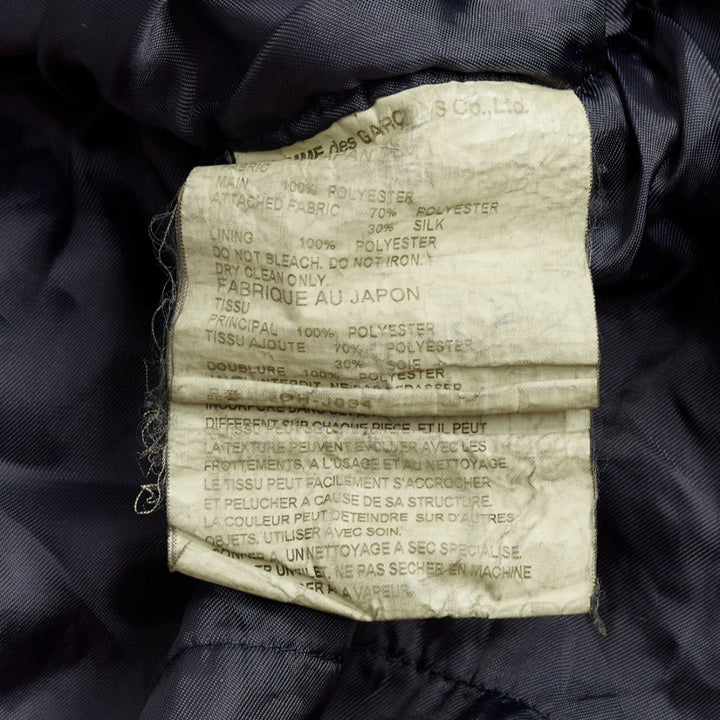 des GARÇ S Co.,Ltd.
MAIN 100% POLYESTER
ATTACHED FABRIC 70% POLYESTER
30% SILK
LINING 100% POLYESTER
DO NOT BLEACH. DO NOT IRON.
DRY CLEAN ONLY.
FABRIQUE AU JAPON
TISSU
PRINCIPAL 100% POLYESTER
TISSU AJOUTE 70% POLYESTER
30% SOIE
DOUBLURE 100% POLYESTER
DIFFERENT SUR CHAQUE PIECE, ET IL PEUT
LA TEXTURE PEUVENT EVOLUER AVEC LES
FROTTEMENTS, A L'USAGE ET AU NETTOYAGE
LE TISSU PEUT FACILEMENT S'ACCROCHER
ET PELUCHER A CAUSE DE SA STRUCTURE.
LA COULEUR PEUT DETEINDRE SUR D'AUTRES
OBJETS, UTILISER AVEC SOIN.
A UN NETTOYAGE A SEC SPECIALISE.
NE PAS SECHER EN MACHINE
A VAPEUR